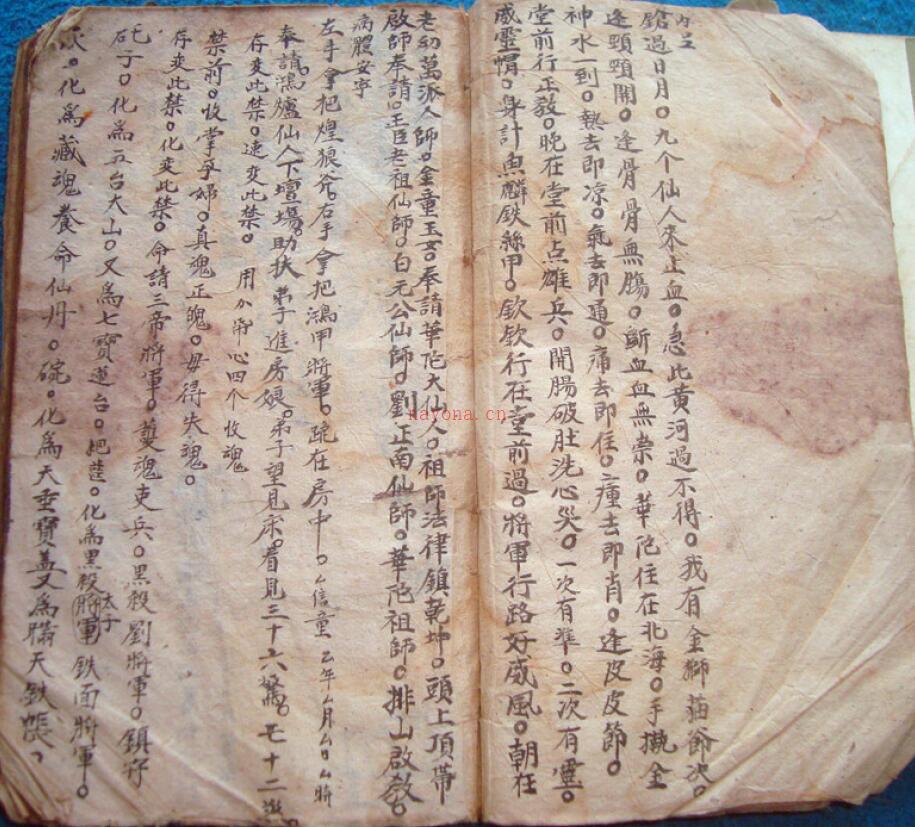 內呈
鎗過日月。九个仙人來止血。急此黃河過不得。我有金獅猫爺次。
逢頸頸開。逢骨骨無腸。斷血血無崇。華陀住在北海。手擑金
神水一到。熱去即凉。氣去即通。痛去即住。瘇去即肖。逢皮皮節。
堂前行正教。晚在堂前点雄兵。開腸破肚洗心哭。一次有準。二次有靈。
威靈帽。身計魚麟鉄絲甲。欽欽行在堂前過。將軍行路好威風。朝在
老幼萬派人師。金童玉女。奉請華陀大仙人。祖師法律鎮乾坤。頭上頂帶
啟師奉請。王臣老祖仙師。白元公仙師。劉正南仙師。華陀祖師。排山啟教。
病體安寧
左手拿把煌狼斧。右手拿把鴻甲將軍。跪在房中。厶信童 厶年厶月厶日厶時
奉請鴻爐仙人下壇場。助扶弟子進房娘。弟子望見床。看見三十六
存变此禁。速变此禁。 用 心四个收魂
禁前。收掌孕婦。真魂正魄。毋得失魂。
存变此禁。化变此禁。命請三帝將軍。美魂吏兵。黑殺劉將軍。鎮守
化為五台大山。又為七寶蓮台。把 化為黑殺將軍太子 鉄面將軍。
化為藏魂養命仙丹。碗。化為天垂寶盖又為 天鉄帳。
nayona.cn